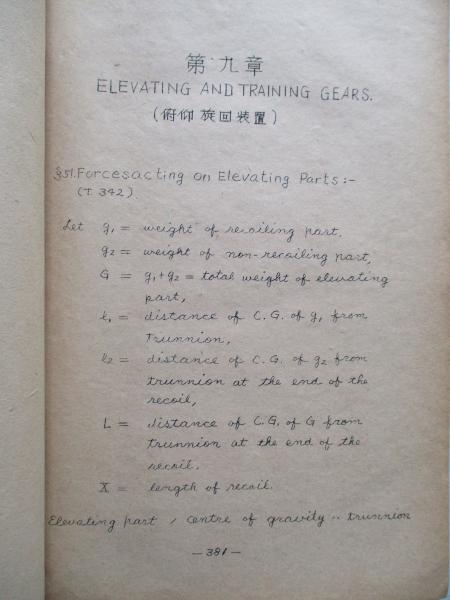 第九章
ELEVATING AND TRAINING GEARS.
(俯仰旋回裝置)
§51. Forces acting on Elevating Parts :-
(T. 342)
Let g₁ = weight of recoiling part,
g₂ = weight of non-recoiling part,
G = g₁+g₂ = total weight of elevating
part,
l₁ = distance of C.G. of g₁ from
trunnion,
l₂ = distance of C.G. of g₂ from
trunnion at the end of the
recoil,
L = distance of C.G. of G from
trunnion at the end of the
recoil.
X = length of recoil.
Elevating part, centre of gravity trunnion
-381-